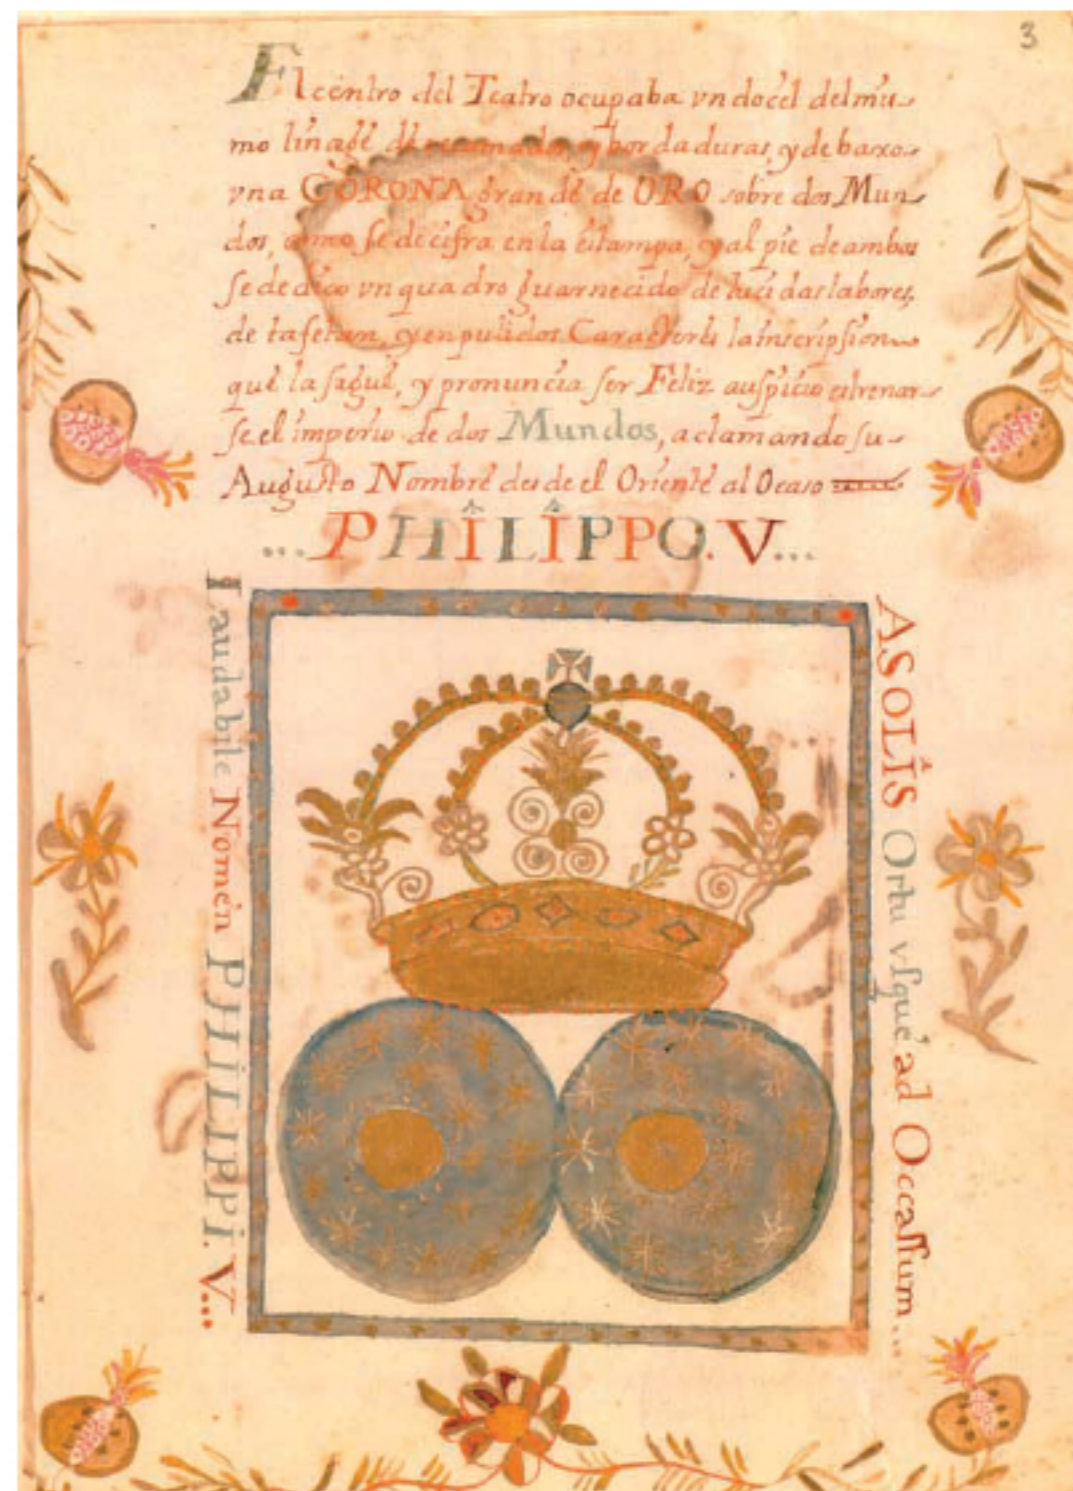 3
El centro del Teatro ocupaba vn docel del mis-
mo linage de recamados, y bordaduras, y debaxo
vna CORONA grande de ORO sobre dos Mun-
dos, como se decifra en la estampa, y al pie de ambos
se dedico vn quadro guarnecido de lucidas labores,
de tafetan, y en pulidos Caracteres la inscripsion
que la sague, y pronuncia ser Feliz auspicio estrenar-
se el imperio de dos Mundos, aclamando su
Augusto Nombre desde el Oriente al Ocaso
...PHILIPPO. V...
A SOLIS Ortu vsque ad Occassum...
Laudabile Nomen PHILIPPI. V...